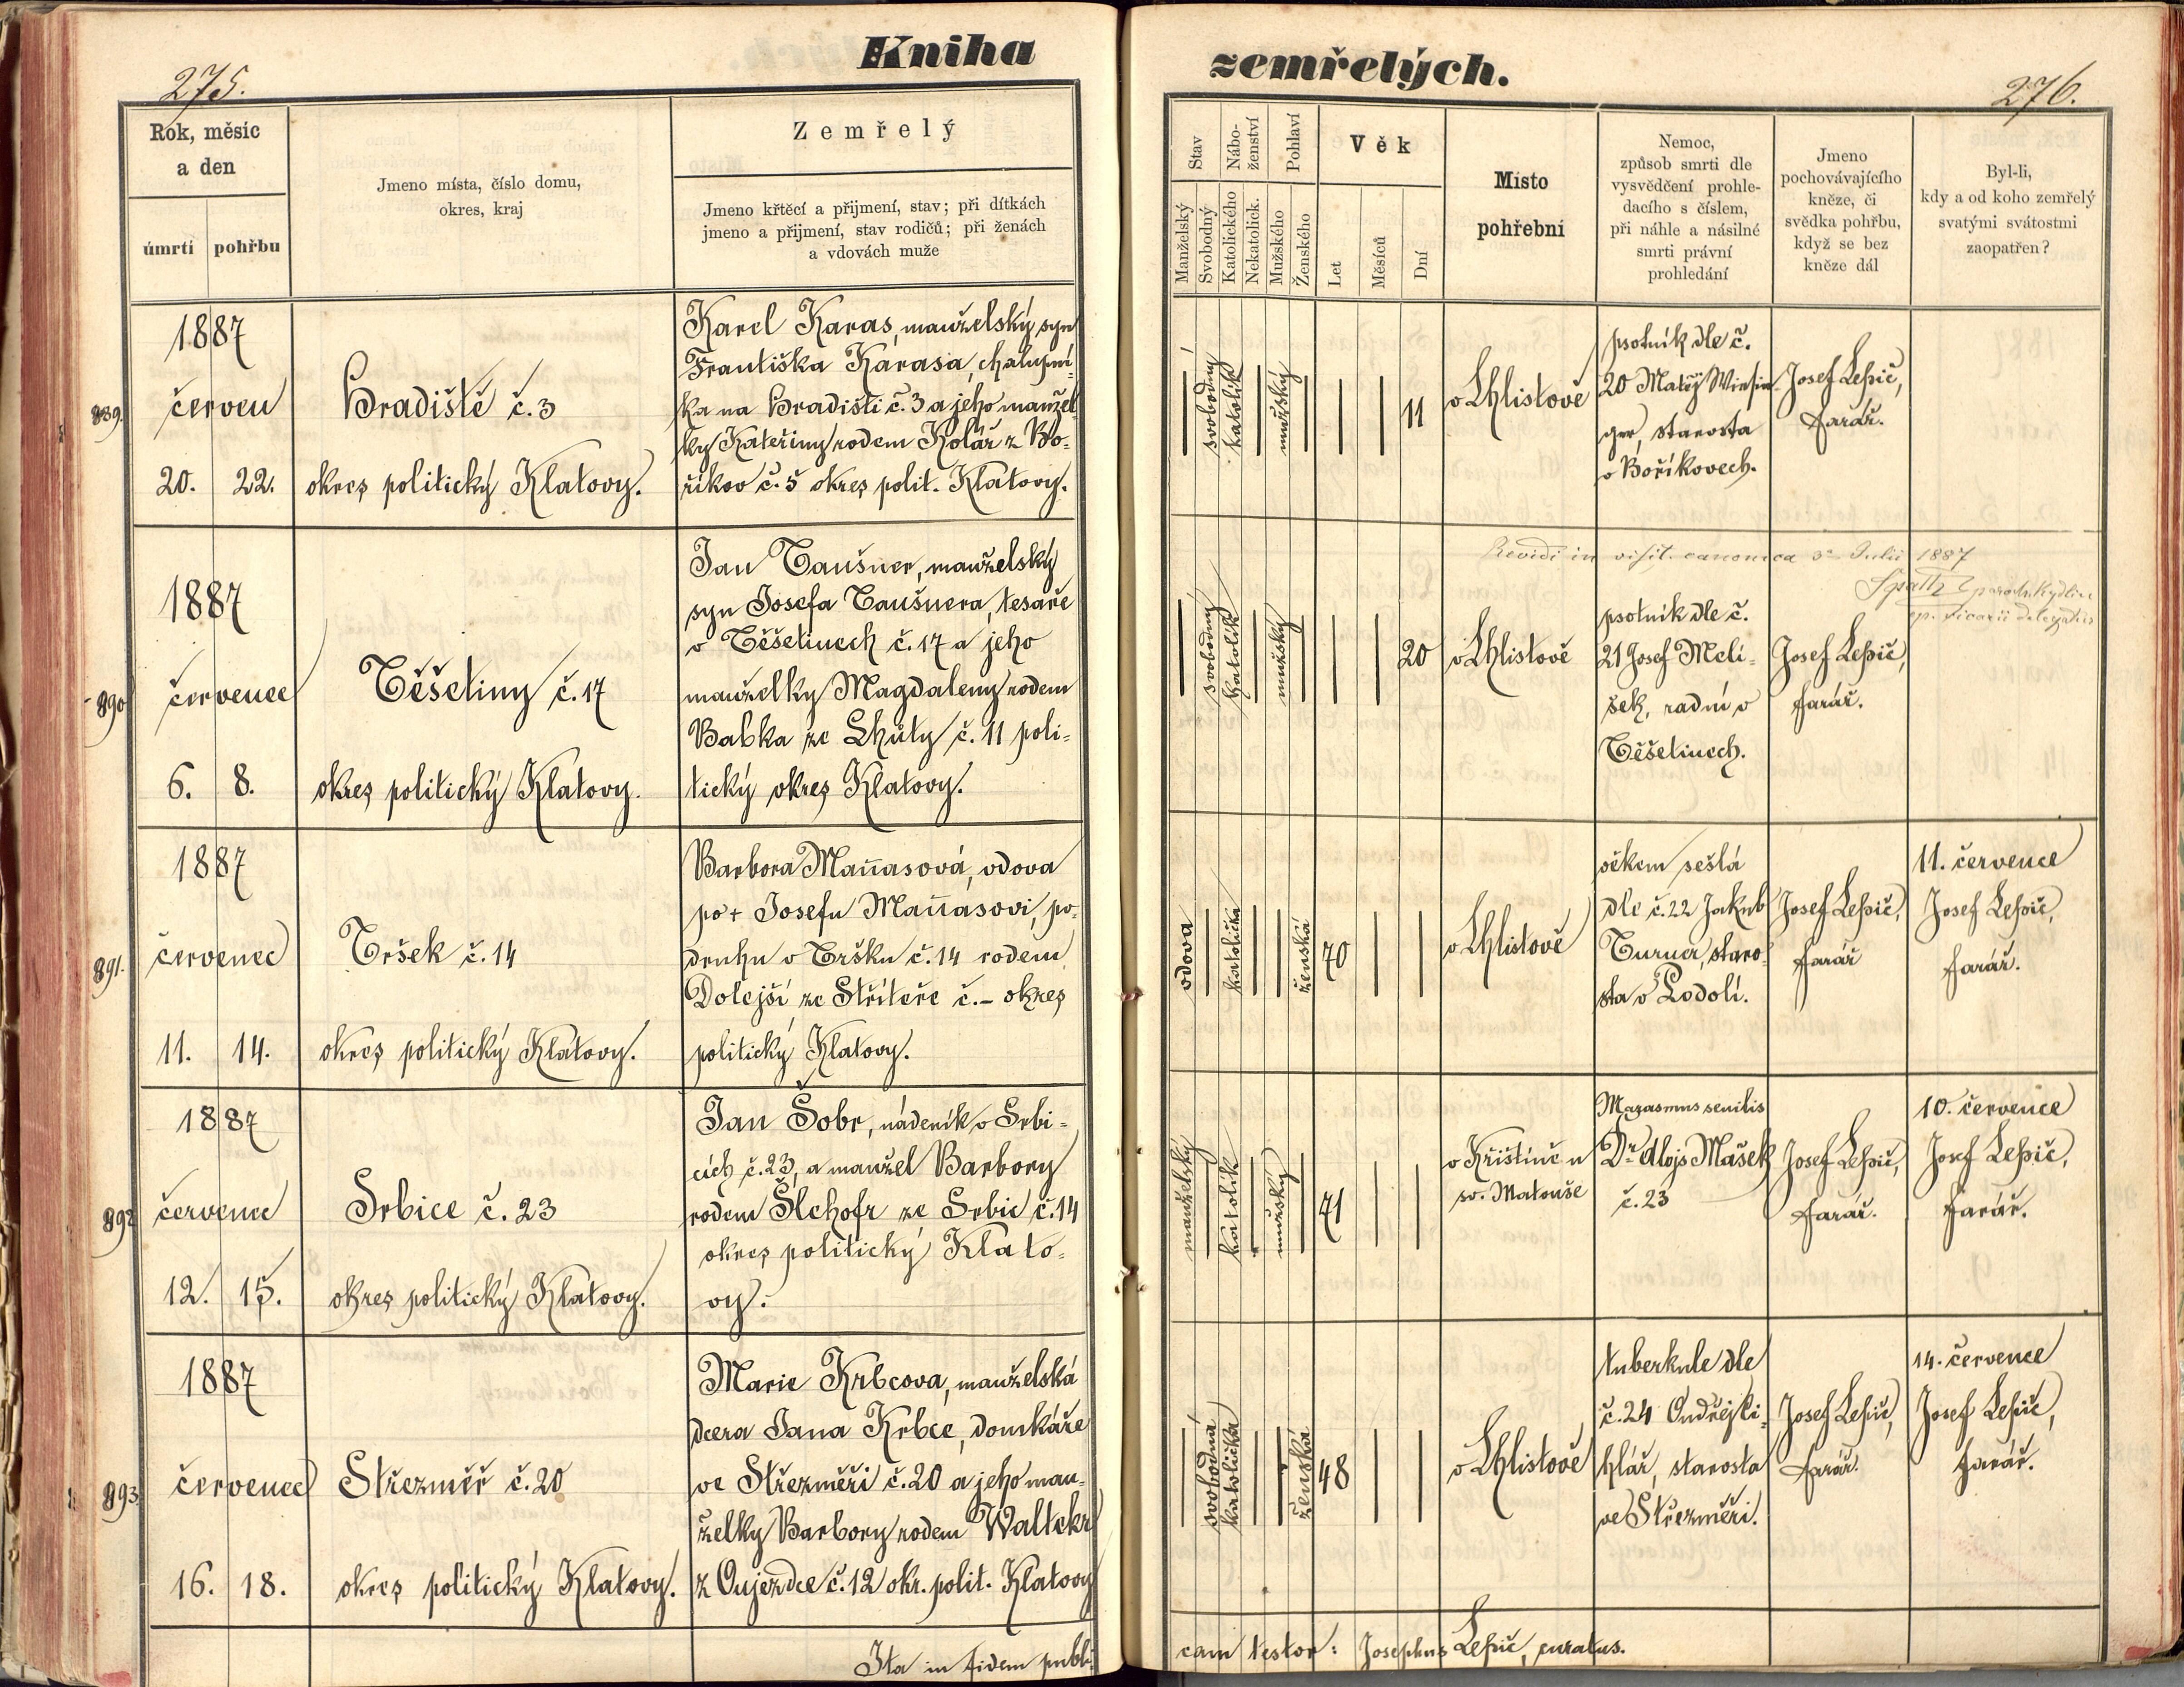 Kniha
zemřelých.
275.
276.
Rok, měsíc
a den
úmrtí
pohřbu
Jmeno místa, číslo domu,
okres, kraj
Zemřelý
Jmeno křtěcí a přijmení, stav; při dítkách
jmeno a přijmení, stav rodičů; při ženách
a vdovách muže
Stav
Manželský
Svobodný
Nábo-
ženství
Katolického
Nekatolick.
Pohlaví
Mužského
Ženského
Věk
Let
Měsíců
Dní
Místo
pohřební
Nemoc,
způsob smrti dle
vysvědčení prohle-
dacího s číslem,
při náhle a násilné
smrti právní
prohledání
Jmeno
pochovávajícího
kněze, či
svědka pohřbu,
když se bez
kněze dál
Byl-li,
kdy a od koho zemřelý
svatými svátostmi
zaopatřen?
889.
1887
červen
20. 22.
Hradiště č. 3
okres politický Klatovy.
Karel Karas, manželský syn
Františka Karasa, chalupní-
ka na Hradišti č. 3 a jeho manžel
ky Kateřiny rodem Kolář z Bo-
říkov č. 5 okres polit. Klatovy.
svobodný
katolík
mužský
11
v Chlistově
psotník dle č.
20 Matěj
ger, starosta
v Boříkovech.
Josef Lepič,
farář.
890
1887
červenec
6. 8.
Těšetiny č. 17
okres politický Klatovy.
Jan Taušner, manželský
syn Josefa Taušnera, tesaře
v Těšetinech č. 17 a jeho
manželky Magdaleny rodem
Babka ze Lhůty č. 11 poli-
tický okres Klatovy.
svobodný
katolík
mužský
20
v Chlistově
Revidi in visit. canonica 3a Julii 1887
psotník dle č.
21 Josef Meli-
šek, radní v
Těšetinech.
Josef Lepič,
farář.
891.
1887
červenec
11. 14.
Tršek č. 14
okres politický Klatovy.
Barbora Maňasová, vdova
po + Josefu Maňasovi, po-
druhu v Tršku č. 14 rodem
Dolejší ze Stříteře č. – okres
politický Klatovy.
vdova
katolička
ženská
70
v Chlistově
věkem sešlá
dle č. 22 Jakub
Turner, staro-
sta v Lodolí.
Josef Lepič,
farář
11. července
Josef Lepič,
farář.
892
1887
červenec
12. 15.
Srbice č. 23
okres politický Klatovy.
Jan Šobr, nádeník v Srbi-
cích č. 23, a manžel Barbory
rodem Šlehofr ze Srbic č. 14
okres politický Klato-
vy.
manželský
katolík
mužský
71
v Křištíně u
sv. Matouše
Marasmus senilis
Dr. Alojs Mašek
č. 23
Josef Lepič,
farář.
10. července
Josef Lepič,
farář.
893
1887
červenec
16. 18.
Střezměř č. 20
okres politický Klatovy.
Marie Krbcova, manželská
dcera Jana Krbce, domkáře
ve Střezměři č. 20 a jeho man-
želky Barbory rodem Waltekr
z Oujezdce č. 12 okr. polit. Klatovy
svobodná
katolička
ženská
48
v Chlistově
tuberkule dle
č. 24 Ondřej Ci-
hlář, starosta
ve Střezměři.
Josef Lepič,
farář.
14. července
Josef Lepič,
farář.
Ita in fidem publi-
cam testor: Josephus Lepič, curatus.